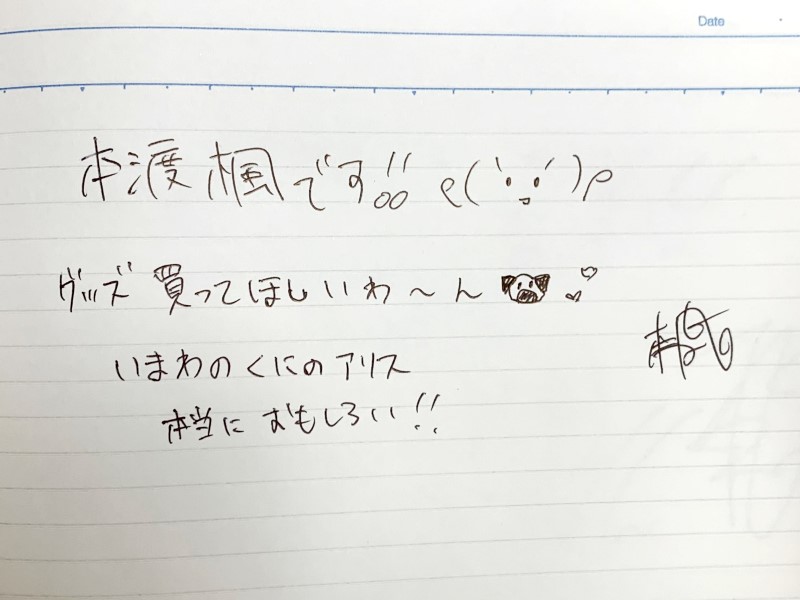 Date
本渡楓です!! ρ( '・ω・' )ρ
グッズ 買ってほしいわ〜ん
いまわのくにのアリス
本当に おもしろい!!